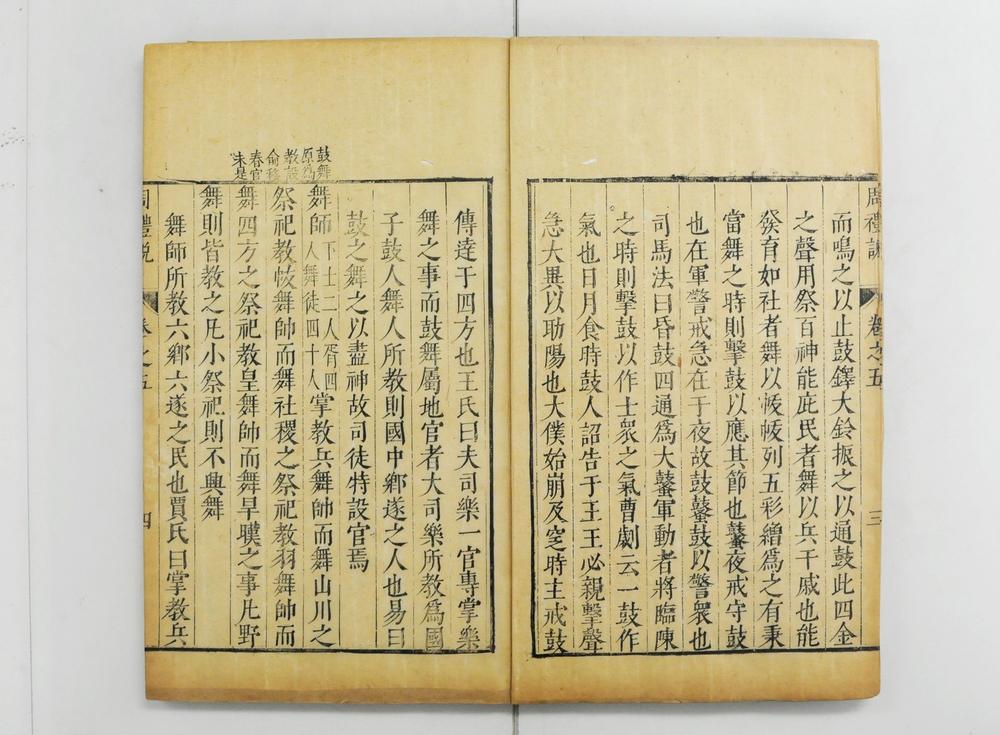 周禮說
卷之五
三
而鳴之以止鼓鐸大鈴振之以通鼓此四金
之聲用祭百神能庇民者舞以兵干戚也能
發育如社者舞以帗帗列五彩繒為之有秉
當舞之時則擊鼓以應其節也鼜夜戒守鼓
也在軍警戒急在于夜故鼓鼜鼓以警衆也
司馬法曰昏鼓四通為大鼜軍動者將臨陳
之時則擊鼓以作士衆之氣曹劌云一鼓作
氣也日月食時鼓人詔告于王王必親擊聲
急大異以助陽也大僕始崩及窆時主戒鼓
傳達于四方也王氏曰夫司樂一官專掌樂
舞之事而鼓舞屬地官者大司樂所教為國
子鼓人舞人所教則國中鄉遂之人也易曰
鼓之舞之以盡神故司徒特設官焉
鼓舞
原為
教
俞移
春官
未是
舞師下士二人胥四人舞徒四十人掌教兵舞帥而舞山川之
祭祀教帗舞帥而舞社稷之祭祀教羽舞帥而
舞四方之祭祀教皇舞帥而舞旱暵之事凡野
舞則皆教之凡小祭祀則不興舞
舞師所教六鄉六遂之民也賈氏曰掌教兵
周禮說
卷之五
四